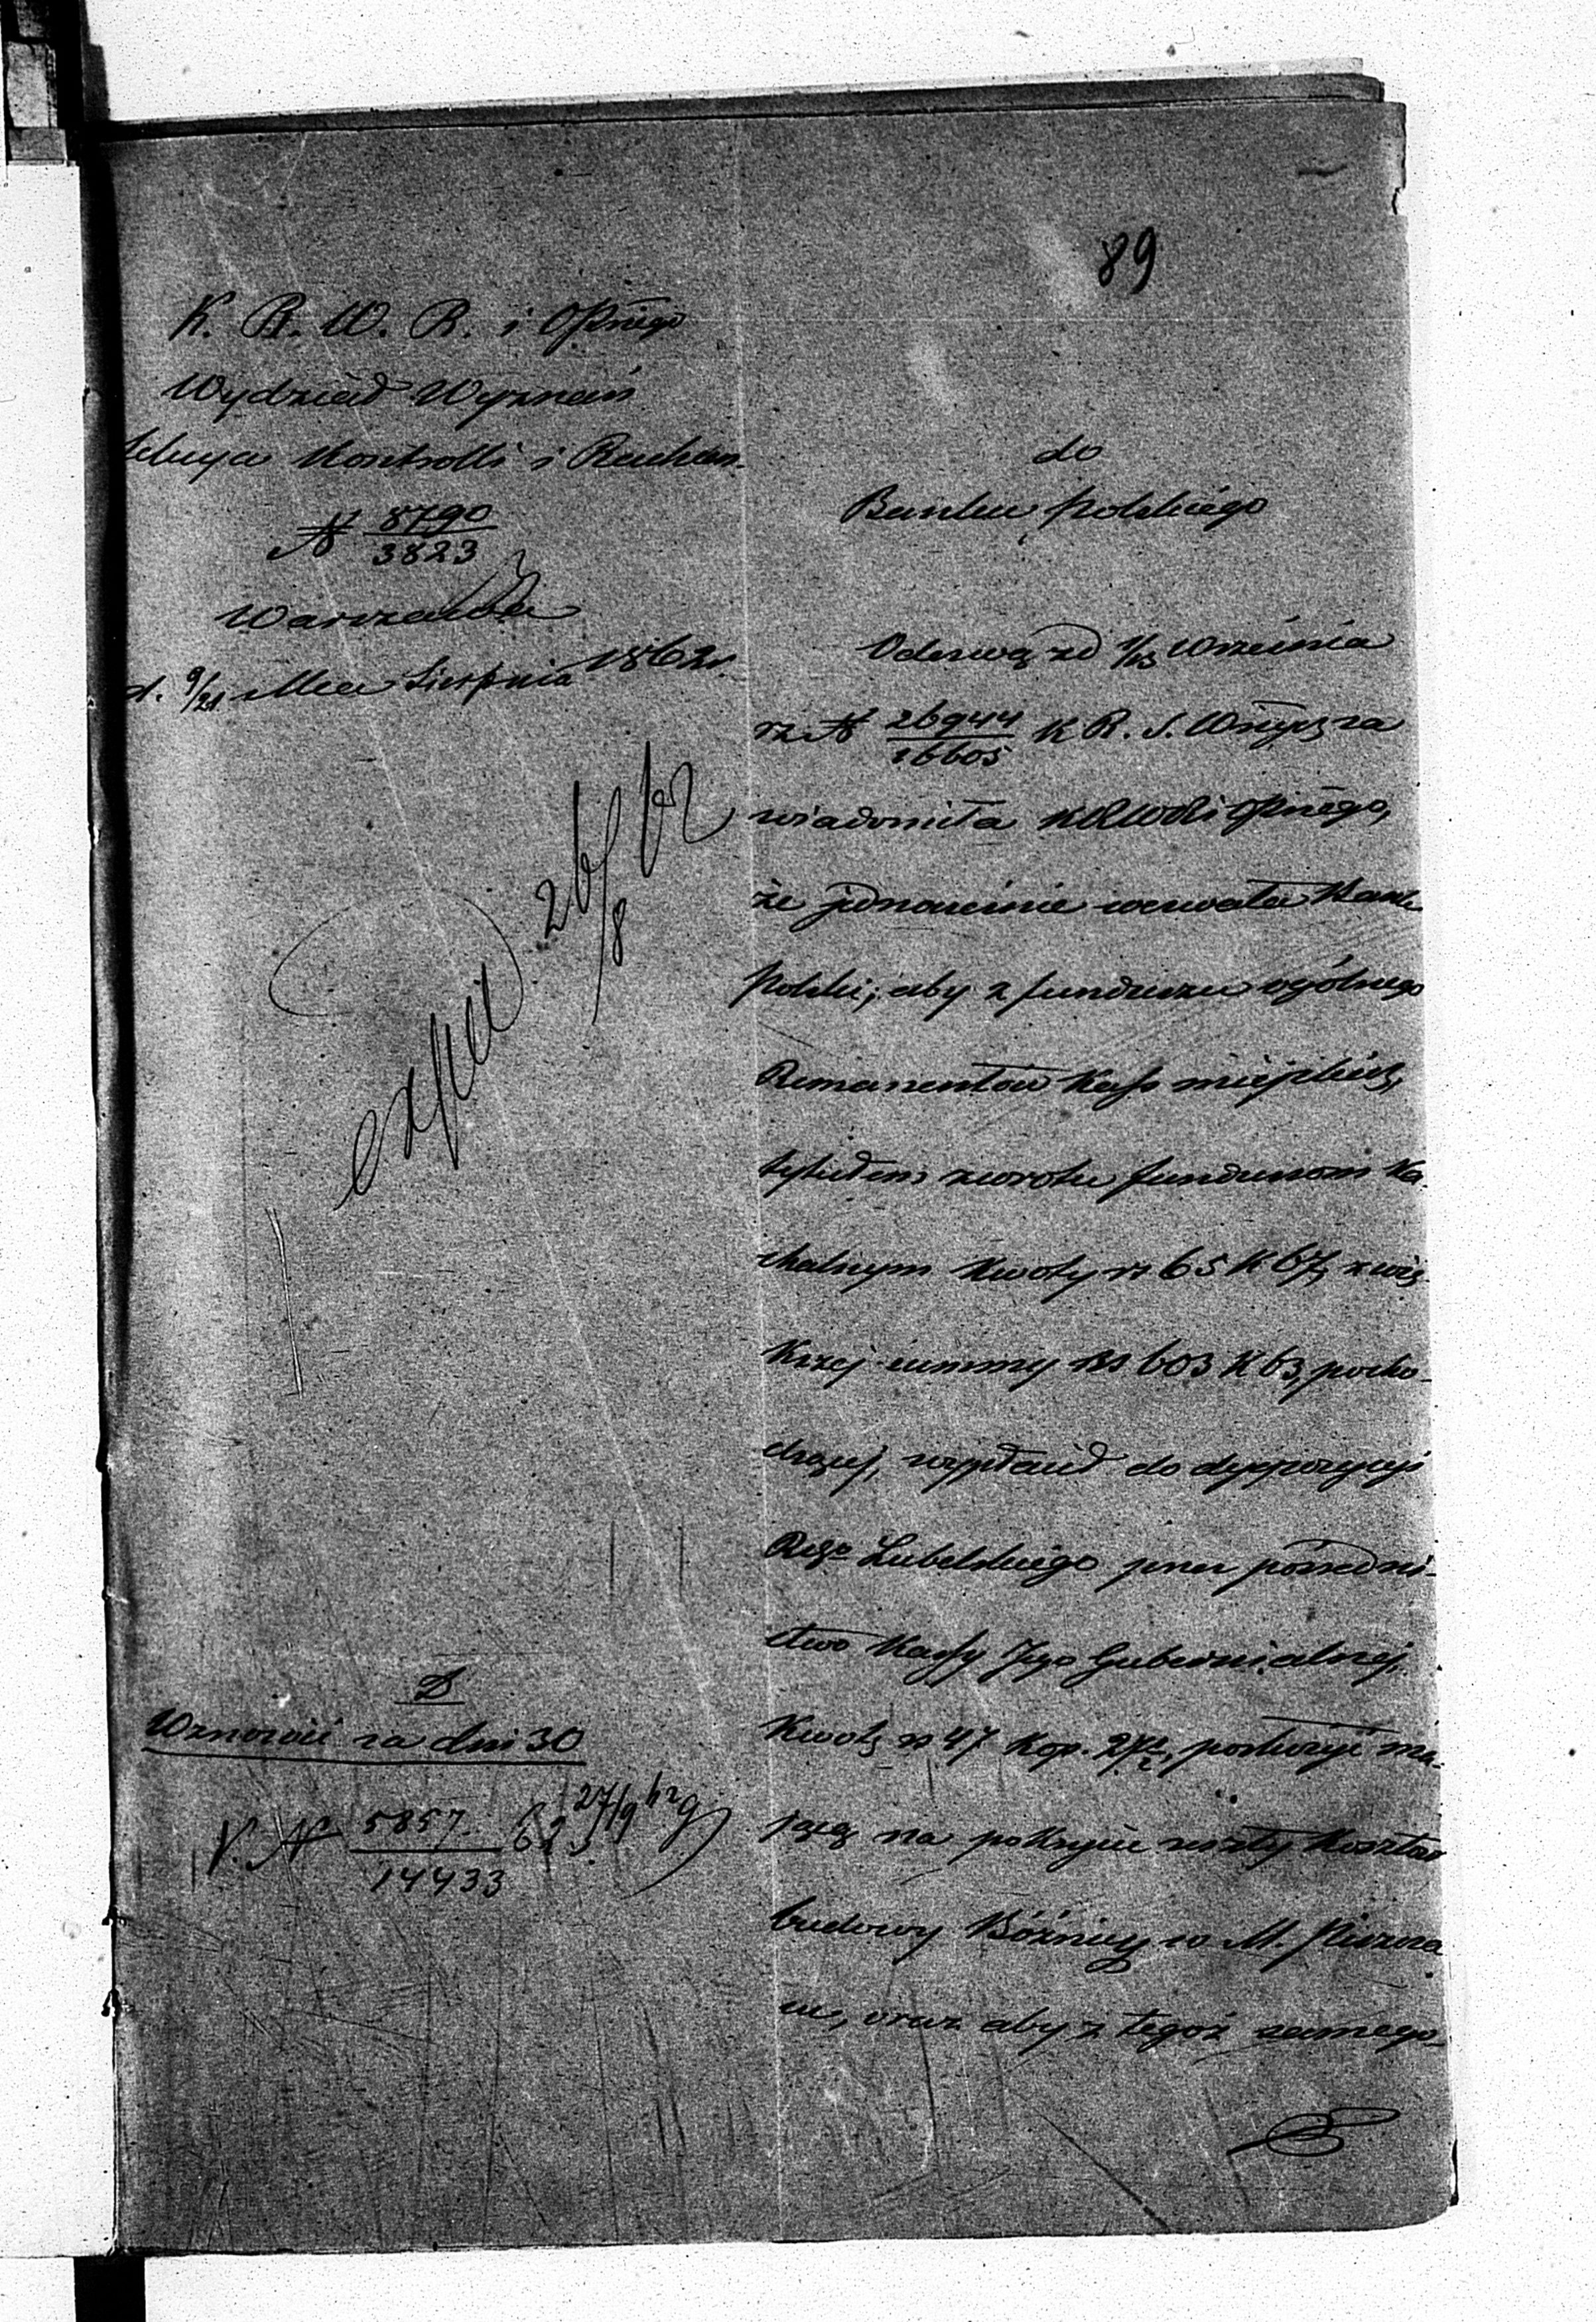 89
K. R. W. R. i OPnego
Wydział Wyznań
Sekcya Kontrolli i Rachun.
N 8790
3823
Warszawa
d. 9/21 Mca Sierpnia 1862 r.
exped. 26/8 62
D
Wznowić za dni 30
V. N 5857
14433
62 27/9
do
Banku Polskiego
Odezwą zd 1/13 Września
rz N 26944
16605
K R. S. Wnych za
wiadomiła KRWR i OPnego,
że jednocześnie wezwała Bank
Polski, aby z funduszu ogólnego
Remanentów Kass miejskich,
tytułem zwrotu funduszom Ka-
halnym Kwoty rs 65 K 67, z wię-
kszej summy Rs 603 K 63, pocho-
dzącej, wypłacił do dyspozycyi
Rządu Lubelskiego przez pośredni-
ctwo Kassy Jego Gubernialnej,
Kwotę rs 47 kop. 27½, posłużyć ma-
jącą na pokrycie reszty kosztów
budowy Bóżnicy w M.
cu, oraz aby z tegoż samego